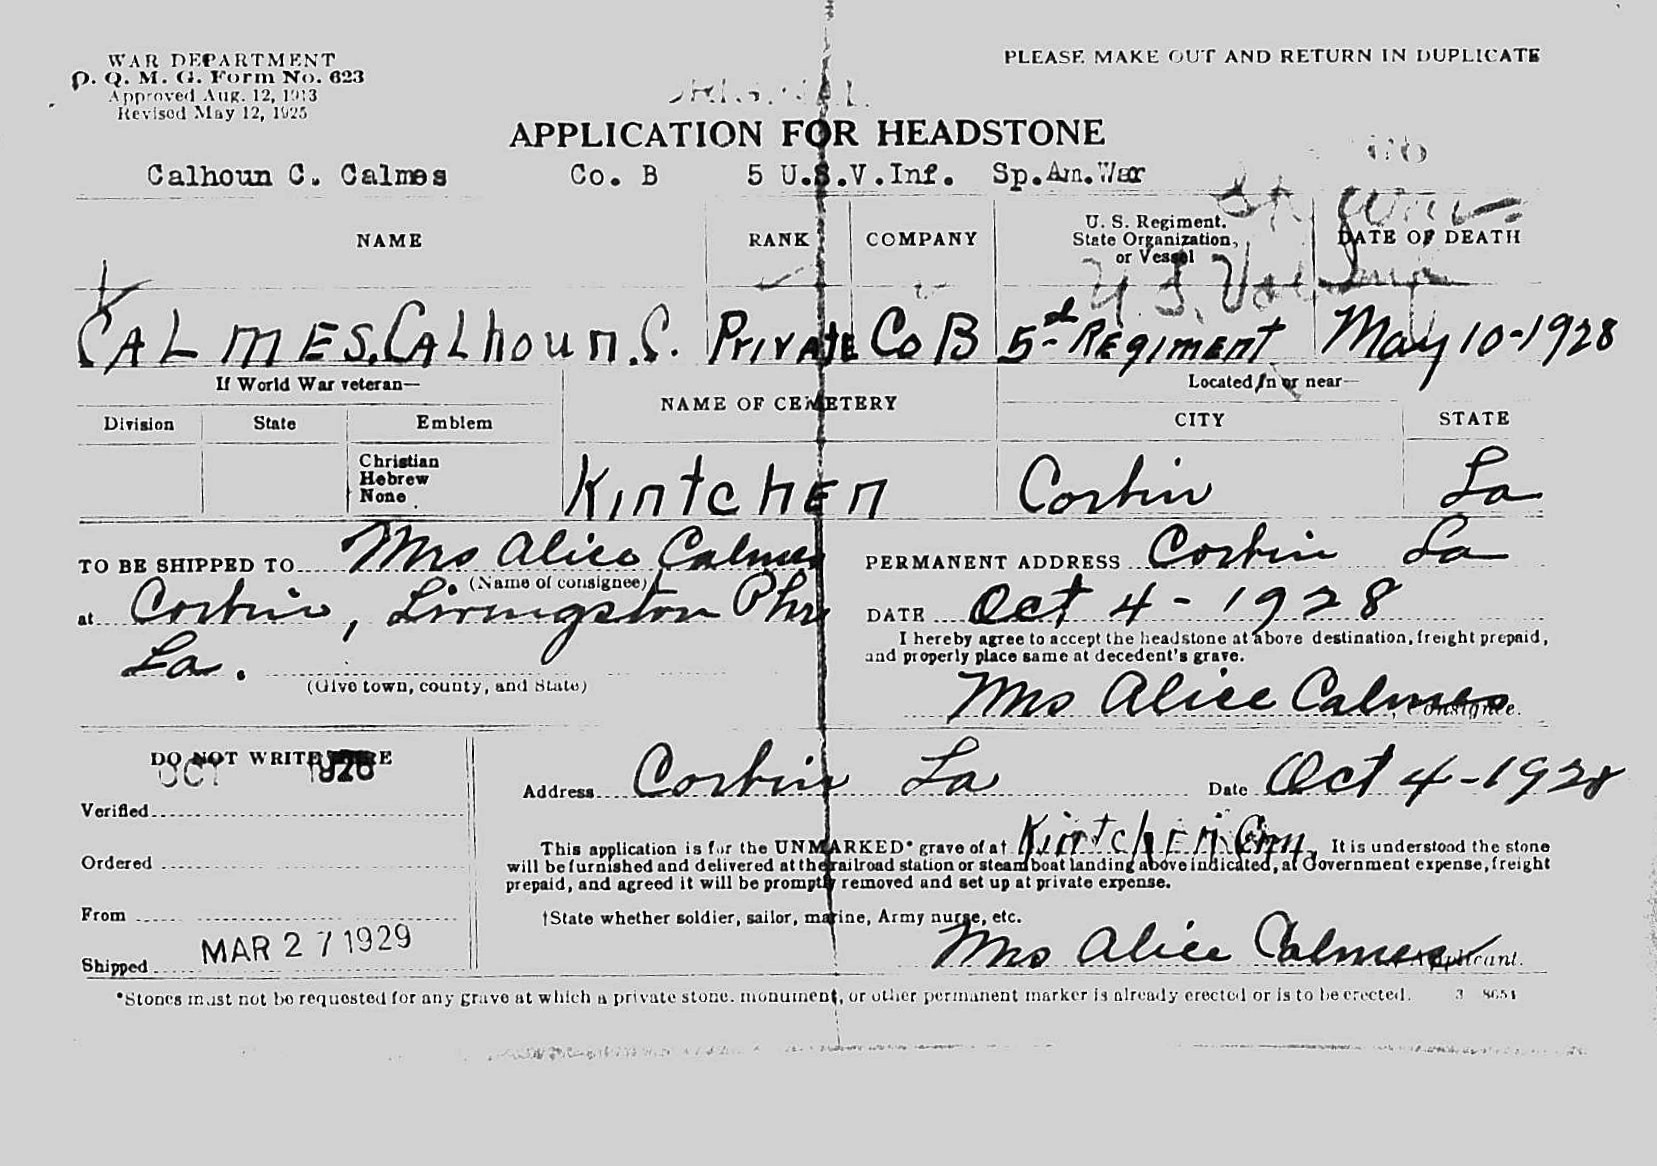 WAR DEPARTMENT
O. Q. M. G. Form No. 623
Approved Aug. 12, 1913
Revised May 12, 1925
PLEASE MAKE OUT AND RETURN IN DUPLICATE
ORIGINAL
APPLICATION FOR HEADSTONE
Calhoun C. Calmes Co. B 5 U.S.V.Inf. Sp.Am.War
NAME RANK COMPANY U. S. Regiment. State Organization, or Vessel DATE OF DEATH
CALMES, CALhoun. C. Private Co B 5d Regiment May 10-1928
If World War veteran— NAME OF CEMETERY Located in or near—
Division State Emblem CITY STATE
Christian
Hebrew
None
Kintchen Corbin La
TO BE SHIPPED TO Mrs Alice Calmes
(Name of consignee)
at Corbin, Livingston
La.
(Give town, county, and State)
PERMANENT ADDRESS Corbin La
DATE Oct 4 - 1928
I hereby agree to accept the headstone at above destination, freight prepaid,
and properly place same at decedent's grave.
Mrs Alice Calmes, Consignee.
DO NOT WRITE HERE
OCT 1928
Verified
Ordered
From
Shipped MAR 27 1929
Address Corbin La Date Oct 4-1928
This application is for the UNMARKED* grave of a† at Kintchen Cem. It is understood the stone
will be furnished and delivered at the railroad station or steamboat landing above indicated, at Government expense, freight
prepaid, and agreed it will be promptly removed and set up at private expense.
†State whether soldier, sailor, marine, Army nurse, etc.
Mrs Alice Calmes, Applicant.
*Stones must not be requested for any grave at which a private stone. monument, or other permanent marker is already erected or is to be erected. 3—8651